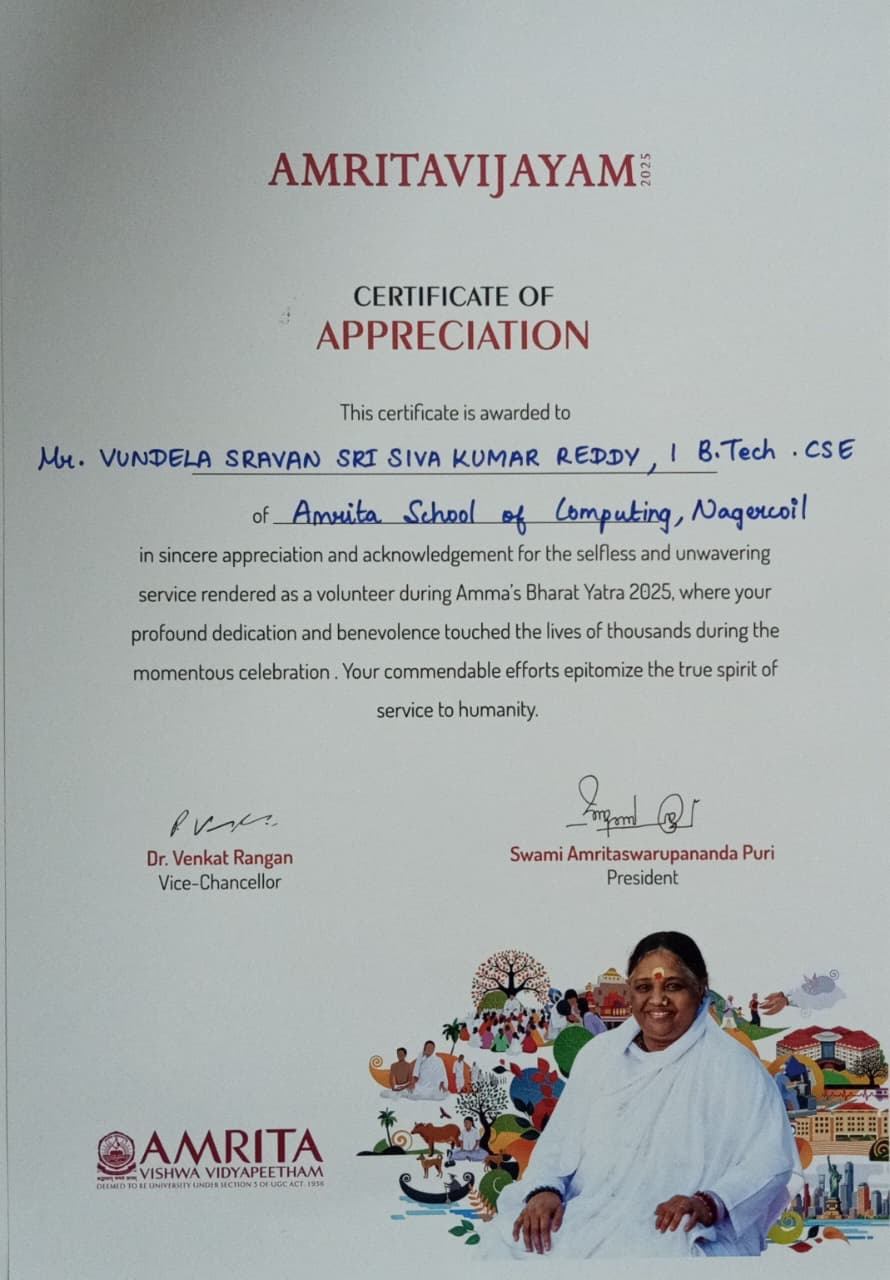 AMRITAVIJAYAM 2025
CERTIFICATE OF
APPRECIATION
This certificate is awarded to
Mr. VUNDELA SRAVAN SRI SIVA KUMAR REDDY, I B.Tech . CSE
of Amrita School of Computing, Nagercoil
in sincere appreciation and acknowledgement for the selfless and unwavering
service rendered as a volunteer during Amma's Bharat Yatra 2025, where your
profound dedication and benevolence touched the lives of thousands during the
momentous celebration . Your commendable efforts epitomize the true spirit of
service to humanity.
Dr. Venkat Rangan
Vice-Chancellor
Swami Amritaswarupananda Puri
President
AMRITA
VISHWA VIDYAPEETHAM
DEEMED TO BE UNIVERSITY UNDER SECTION 3 OF UGC ACT, 1956